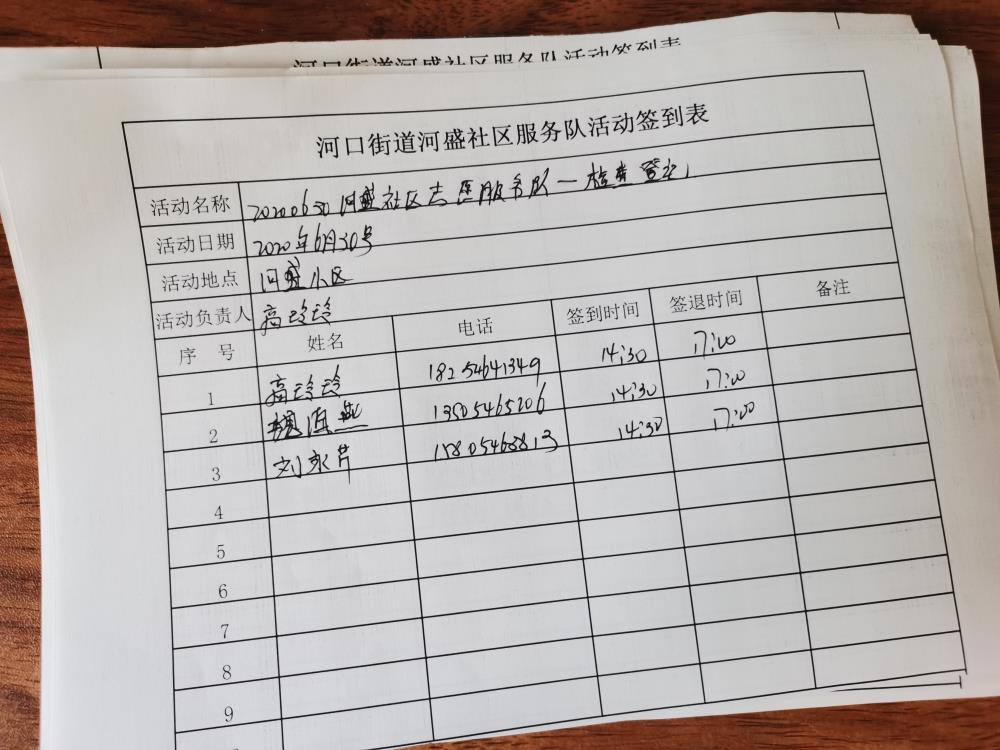 河口街道河盛社区服务队活动签到表
河口街道河盛社区服务队活动签到表
活动名称 20200630河盛社区志愿服务队一检查登记
活动日期 2020年6月30号
活动地点 河盛小区
活动负责人 高玲玲
序 号 姓名 电话 签到时间 签退时间 备注
1 高玲玲 18254641349 14:30 17:00
2 燕 13505465206 14:30 17:00
3 刘永芹 15805468813 14:30 17:00
4
5
6
7
8
9